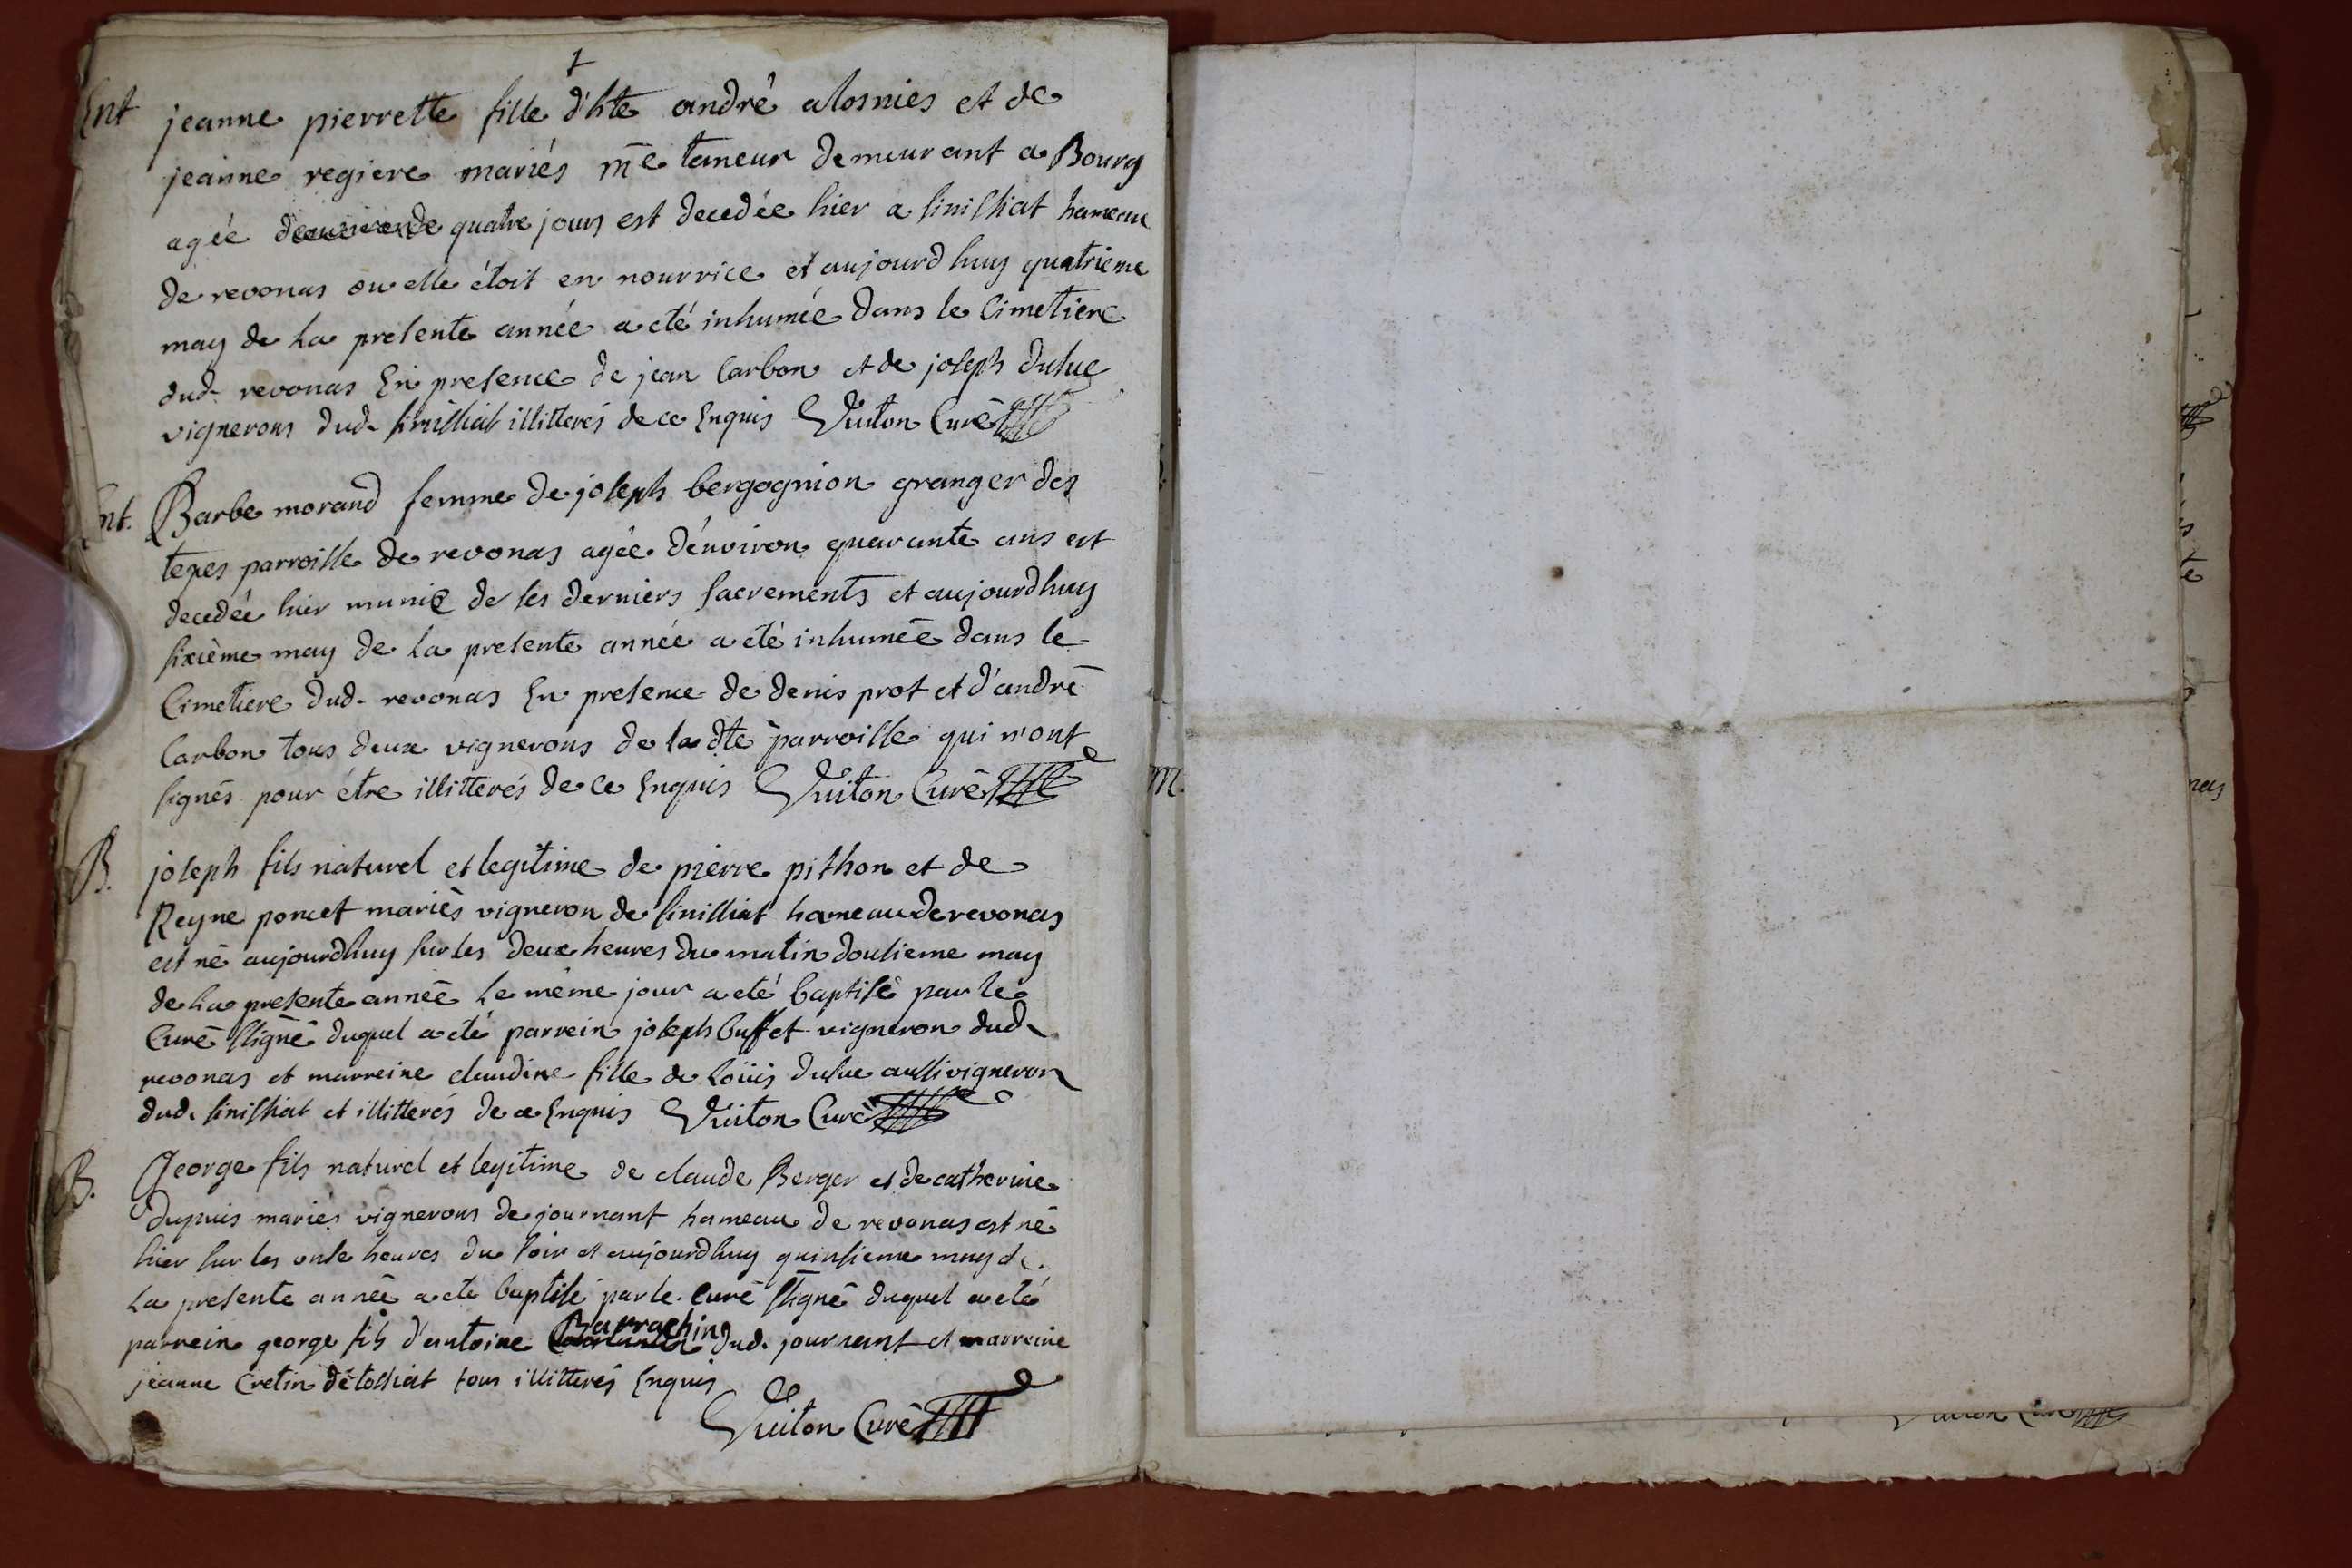 †
Ent jeanne pierrette fille d'hte andré alosnies et de
jeanne regiere mariés me taneur demeurant a Bourg
agée quatre jours est decedée hier a sinissiat hameau
de revonas ou elle étoit en nourrice et aujourdhuy quatrieme
may de la presente année a eté inhumée dans le Cimetiere
dud. revonas En presence de jean Carbon et de joseph duluc
vignerons dud. sinissiat illitterés de ce Enquis Vuiton Curé
Ent. Barbe morand femme de joseph bergognion granger des
tepes parroisse de revonas agée d'environ quarante ans est
decedée hier munie de ses derniers sacrements et aujourdhuy
sixième may de la presente année a eté inhumée dans le
Cimetiere dud. revonas En presence de denis prot et d'andré
Carbon tous deux vignerons de la dte parroisse qui n'ont
signés pour étre illitterés de ce Enquis Vuiton Curé
B. joseph fils naturel et legitime de pierre pithon et de
Reyne poncet mariés vigneron de sinissiat hameau de revonas
est né aujourdhuy sur les deux heures du matin dousieme may
de la presente année le même jour a eté baptisé par le
Curé ssigné duquel a eté parrein joseph buffet vigneron dud.
revonas et marreine claudine fille de loüis duluc aussi vigneron
dud. sinissiat et illitterés de ce Enquis Vuiton Curé
B. George fils naturel et legitime de claude Berger et de catherine
dupuis mariés vignerons de journant hameau de revonas est né
hier sur les onse heures du soir et aujourdhuy quinsieme may de
la presente année a eté baptisé par le Curé ssigné duquel a eté
parrein george fils d'antoine Barrachin dud. journant et marreine
jeanne Cretin détossiat tous illitterés Enquis
Vuiton Curé
M.
te
nas
Vuiton Curé